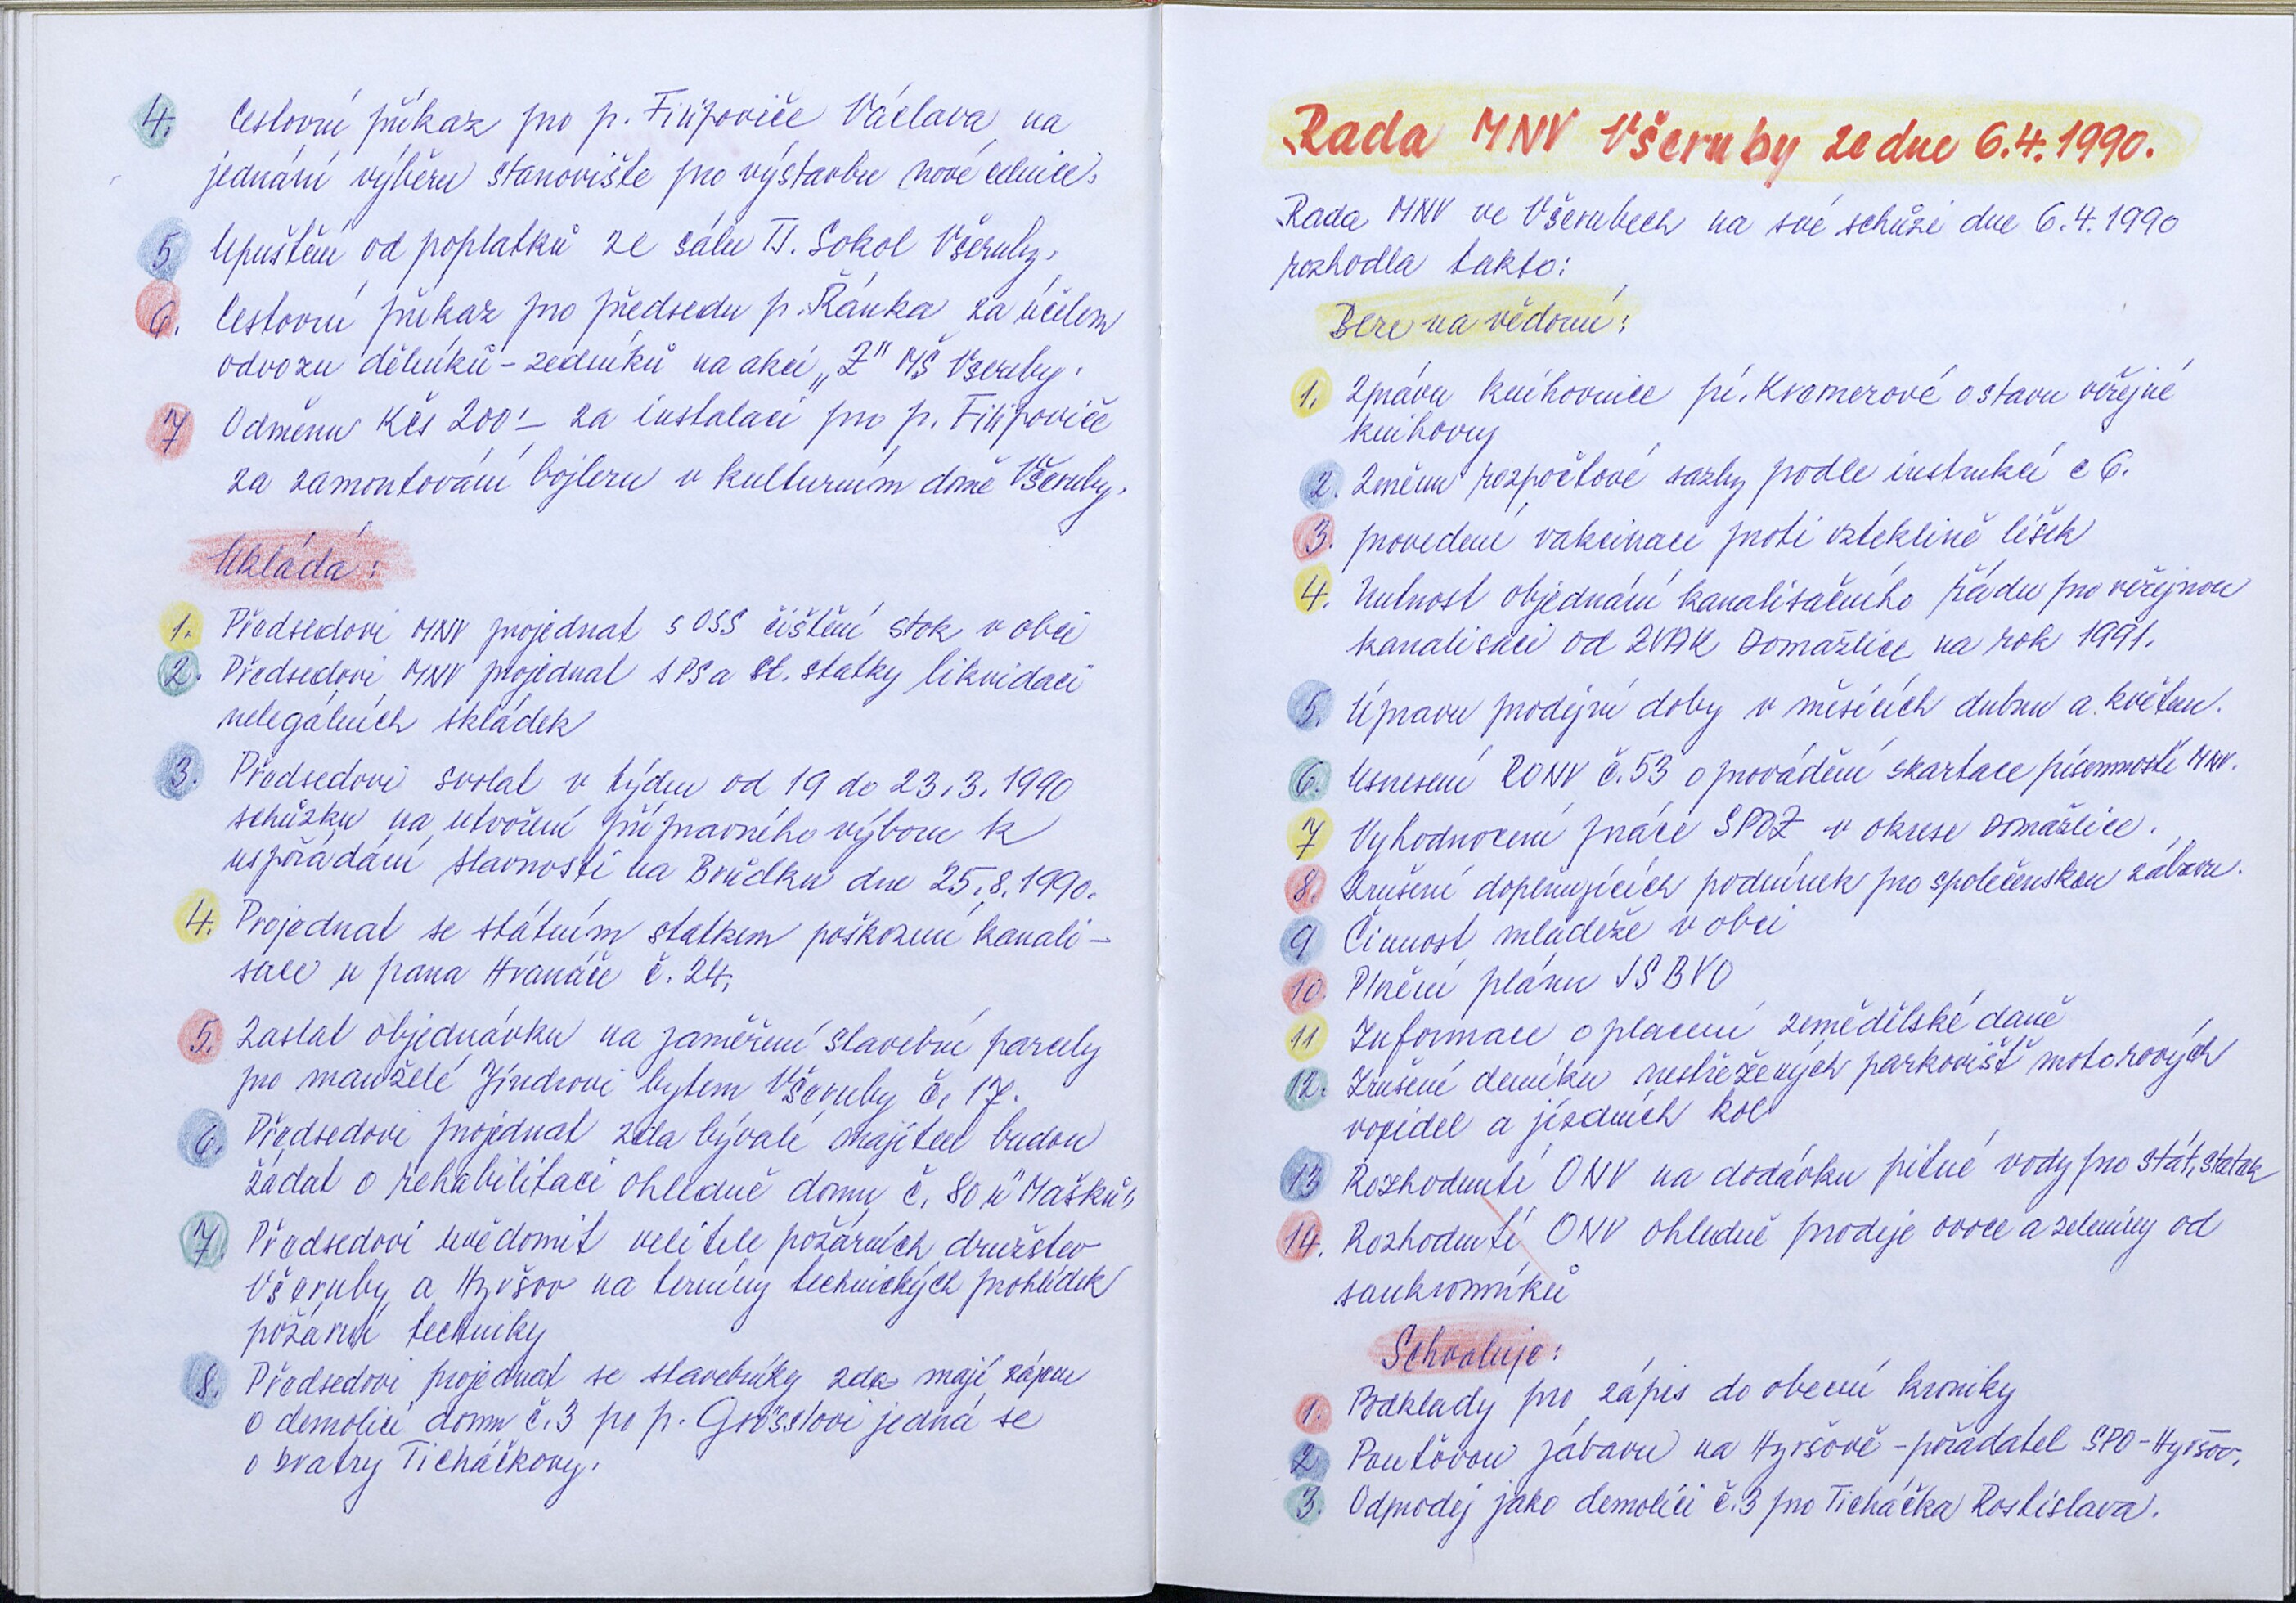 4. Cestovní příkaz pro p. Filipoviče Václava na
jednání výběru stanoviště pro výstavbu nové celnice.
5 Upuštění od poplatků ze sálu TJ. Sokol Všeruby.
6. Cestovní příkaz pro předsedu p. Ránka za účelem
odvozu dělníků - zedníků na akci „Z" MŠ Všeruby.
7 Odměnu Kčs 200'- za instalaci pro p. Filipoviče
za zamontování bojleru v kulturním domě Všeruby.
Ukládá:
1. Předsedovi MNV projednat s OSS čištění stok v obci
2. Předsedovi MNV projednat s PS a st. statky likvidaci
nelegálních skládek
3. Předsedovi svolat v týdnu od 19 do 23.3.1990
schůzku na utvoření přípravného výboru k
uspořádání slavnosti na Brůdku dne 25.8.1990.
4. Projednat se státním statkem poškození kanali-
sace u pana Hranáče č. 24.
5. Zaslat objednávku na zaměření stavební parcely
pro manželé Jindrovi bytem Všeruby č. 17.
6. Předsedovi projednat zda bývalí majitelé budou
žádat o rehabilitaci ohledně domu č. 80 u "Mašků"
7. Předsedovi uvědomit velitele požárních družstev
Všeruby a Hyršov na termíny technických prohlídek
požární techniky
8. Předsedovi projednat se stavebníky zda mají zájem
o demolici domu č. 3 po p. Grösslovi jedná se
o bratry Ticháčkovy.
Rada MNV Všeruby ze dne 6.4.1990.
Rada MNV ve Všerubech na své schůzi dne 6.4.1990
rozhodla takto:
Bere na vědomí:
1. Zprávu knihovnice pí. Kramerové o stavu veřejné
knihovny
2. Změnu rozpočtové sazby podle instrukcí c 6.
3. provedení vakcinace proti vzteklině lišek
4. Nutnost objednání kanalisačního řádu pro veřejnou
kanalisaci od ZVAK Domažlice na rok 1991.
5. Úpravu prodejní doby v měsících dubnu a květnu.
6. Usnesení RONV č. 53 o provádění skartace písemností MNV.
7 Vyhodnocení práce SPOZ v okrese Domažlice.
8. Zrušení doplňujících podmínek pro společenskou zábavu.
9 Činnost mládeže v obci
10. Plnění plánu JSBVO
11 Informace o placení zemědělské daně
12. Zrušení ceníku nestřežených parkovišť motorových
vozidel a jízdních kol
13 Rozhodnutí ONV na dodávku pitné vody pro stát. statek
14. Rozhodnutí ONV ohledně prodeje ovoce a zeleniny od
soukromníků
Schvaluje:
1. Podklady pro zápis do obecní kroniky
2 Pouťovou zábavu na Hyršově - pořadatel SPO - Hyršov.
3. Odprodej jako demolici č. 3 pro Ticháčka Rostislava.